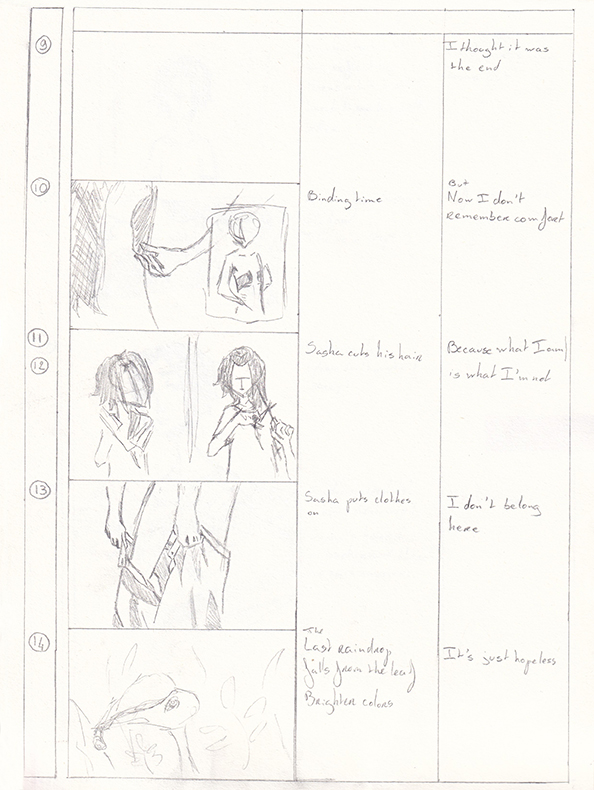 9
I thought it was
the end
10
Binding time
But
Now I don't
remember comfort
11
12
Sasha cuts his hair
Because what I am
is what I'm not
13
Sasha puts clothes
on
I don't belong
here
14
The
Last raindrop
falls from the leaf
Brighter colors
It's just hopeless